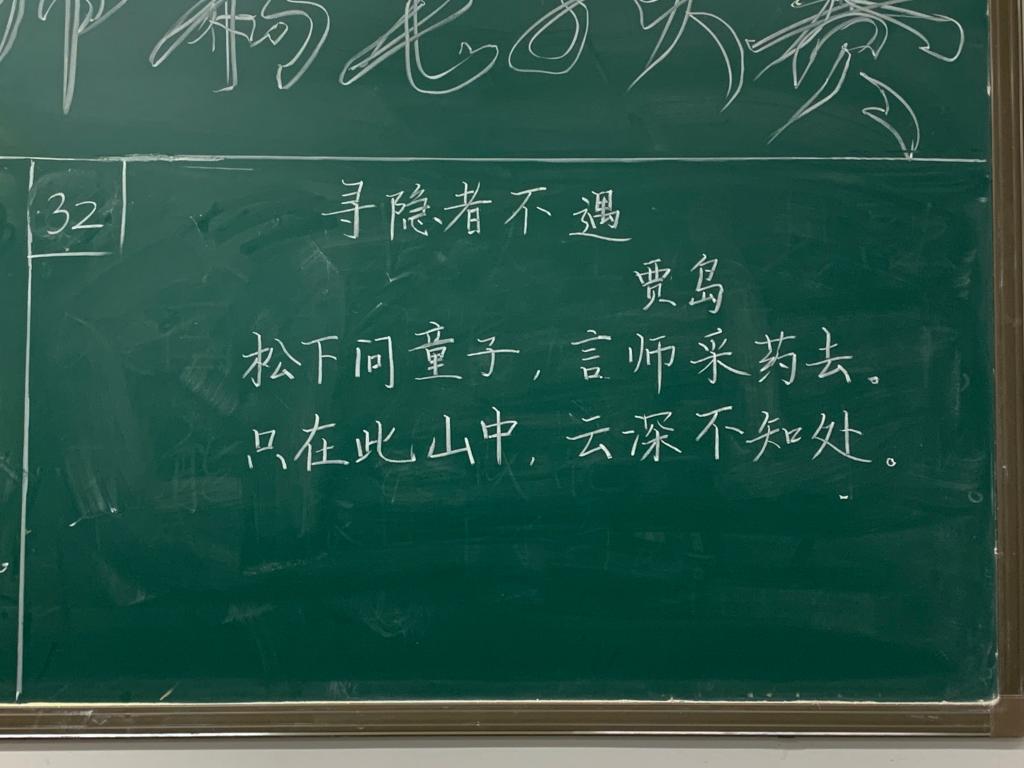 32
寻隐者不遇
贾岛
松下问童子，言师采药去。
只在此山中，云深不知处。